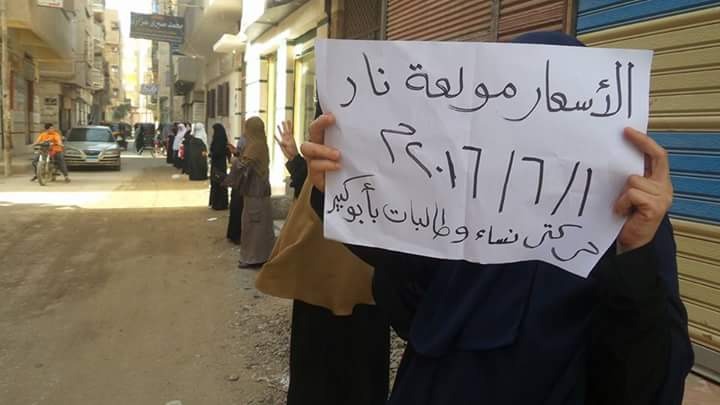 الأسعار مولعة نار
١/٦/٢٠١٦م
حركتى نساء وطالبات بأبوكبير